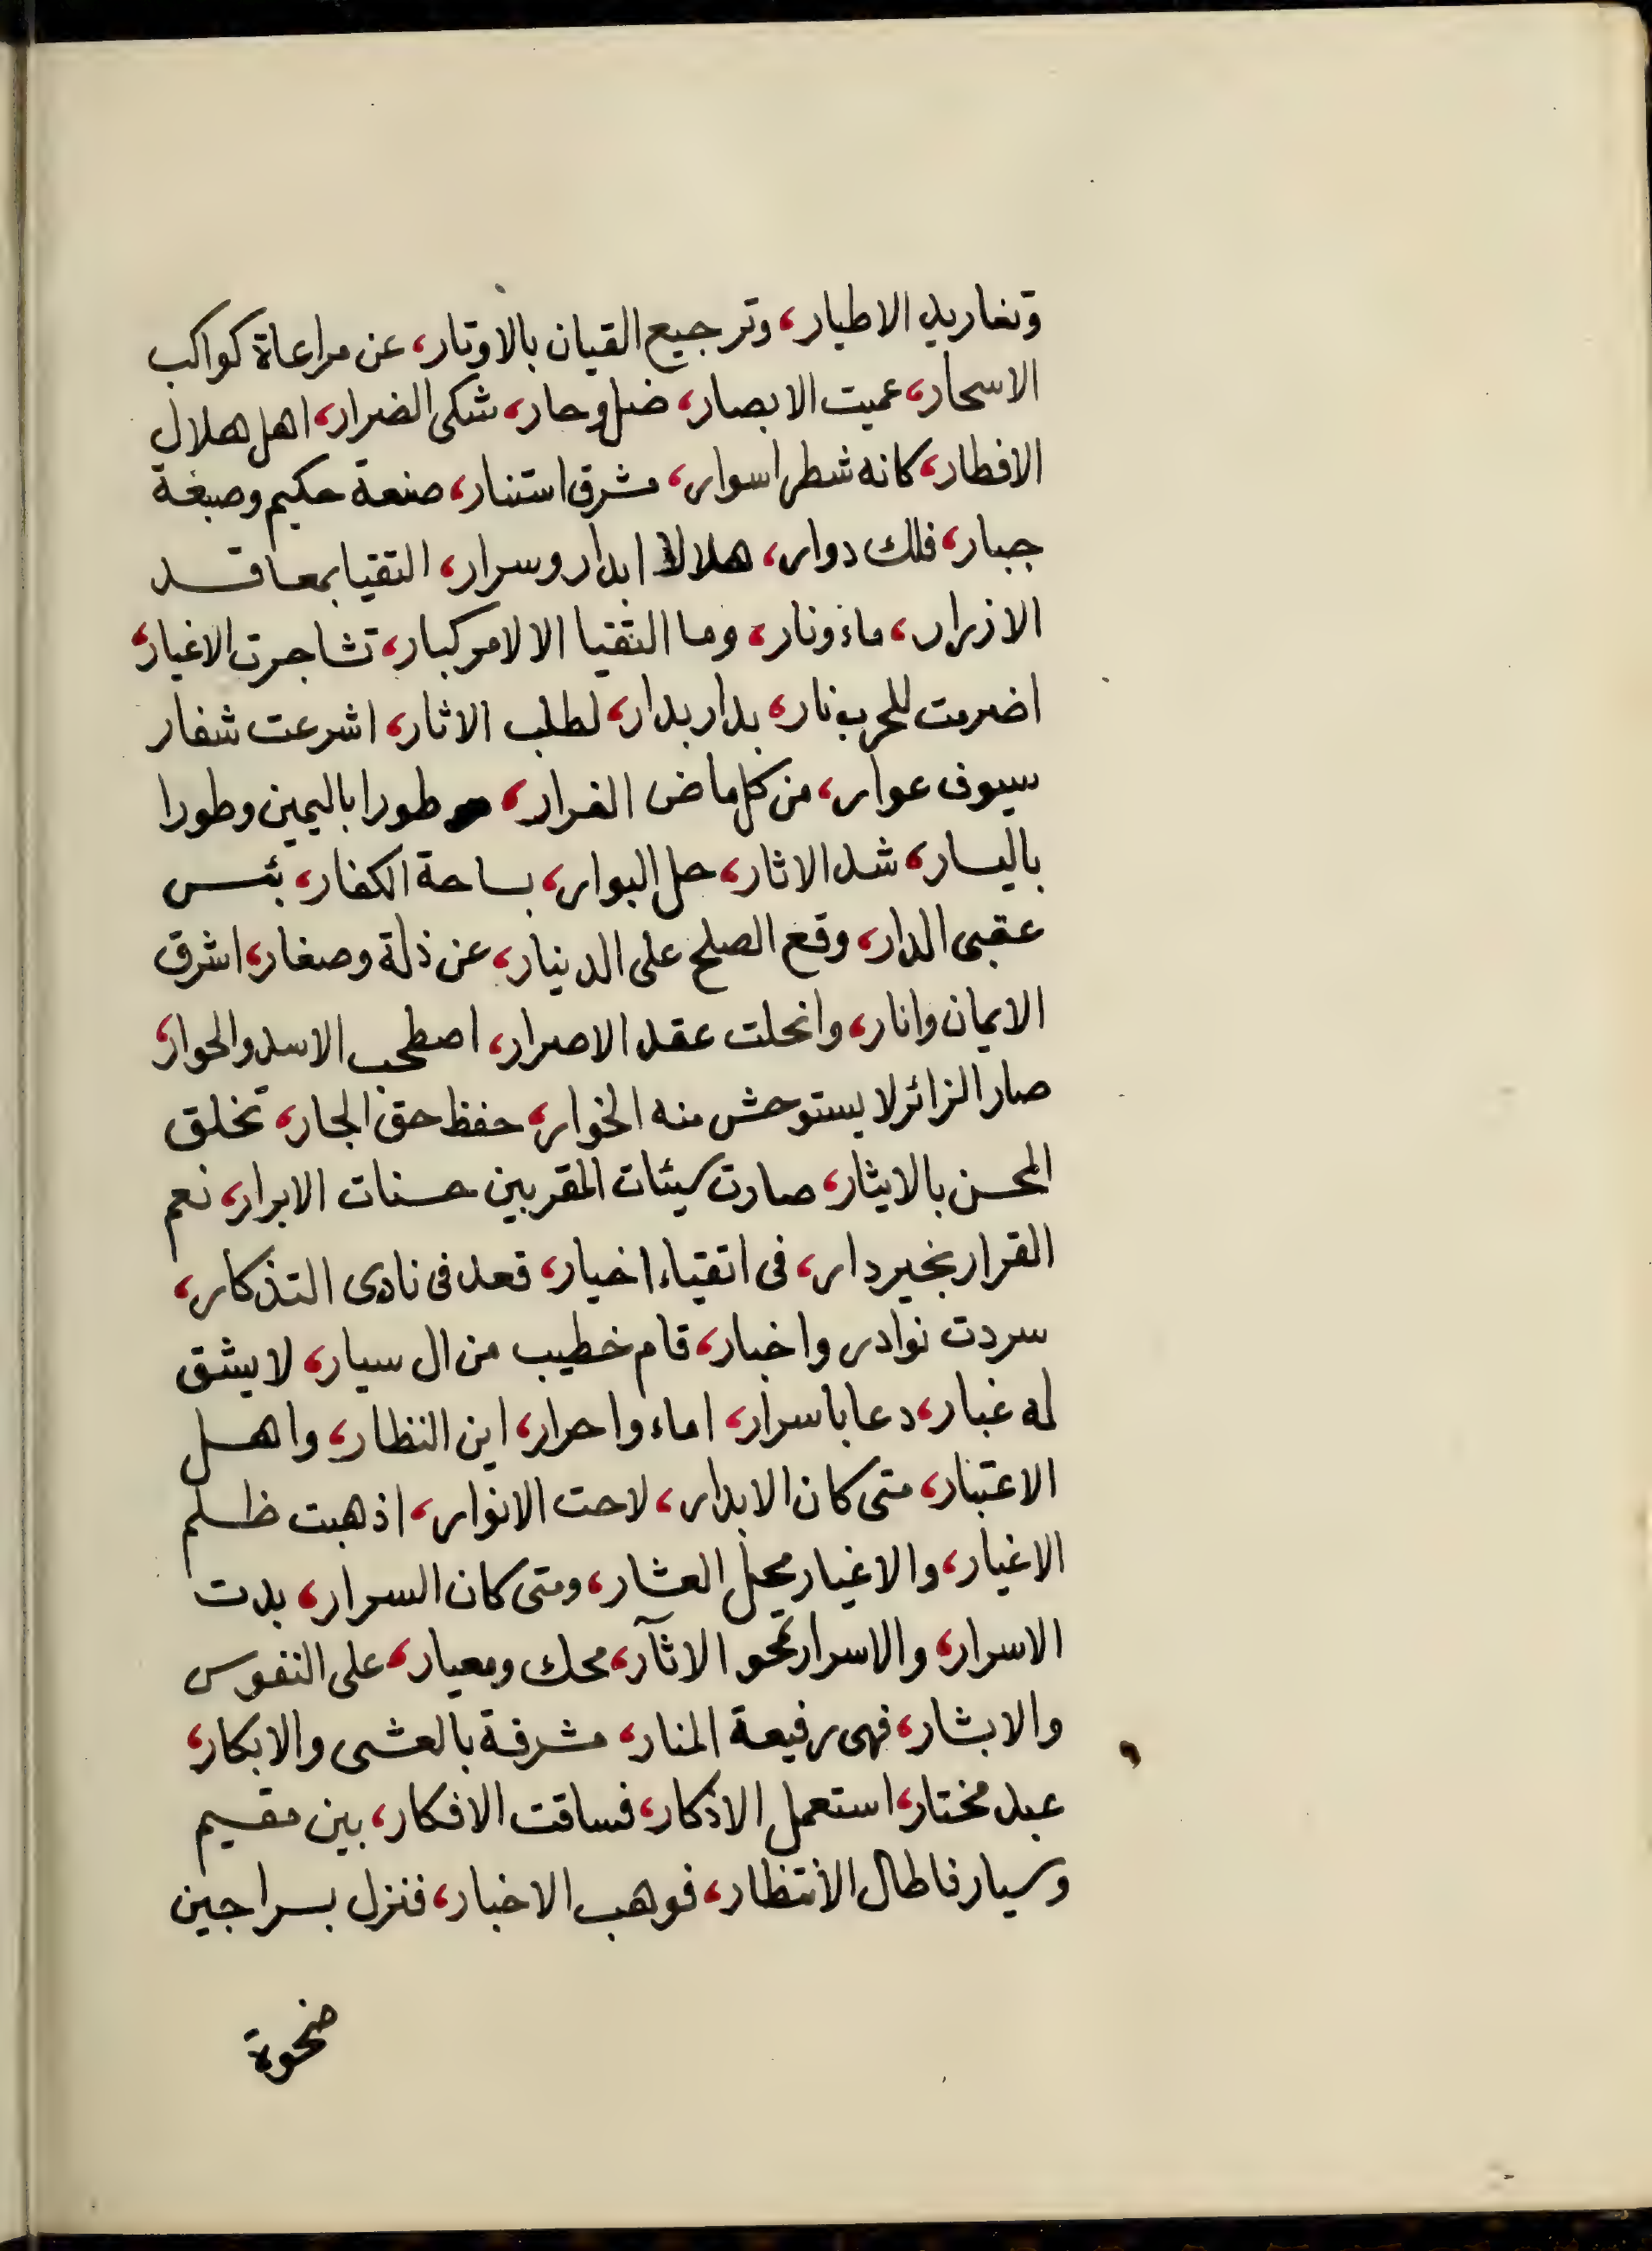 وتغاريد الاطيار، وترجيع القيان بالاوتار، عن مراعاة كواكب
الاسحار، عميت الابصار، ضل وحار، شكى الضرار، اهل هلال
الافطار، كانه شطر اسوار، مشرق استنار، صنعة حكيم وصبغة
جبار، فلك دوار، هلالا ابدار وسرار، التقيا بمعاقد
الازرار، ماء ونار، وما التقيا الا لامر كبار، تشاجرت الاغيار،
اضرمت للحرب نار، بدار بدار، لطلب الاثار، اشرعت شفار
سيوف عوار، من كل ماض الغرار، طورا باليمين وطورا
باليسار، شد الاثار، حل البوار، بساحة الكفار، بئس
عقبى الدار، وقع الصلح على الدينار، عن ذلة وصغار، اشرق
الايمان وانار، وانحلت عقد الاصرار، اصطحب الاسد والحوار،
صار الزائر لا يستوحش منه الخوار، حفظ حق الجار، تخلق
المحسن بالايثار، صارت سيئات المقربين حسنات الابرار، نعم
القرار بخير دار، فى اتقياء اخيار، قعد فى نادى التذكار،
سردت نوادر واخبار، قام خطيب من ال سيار، لا يشق
له غبار، دعا باسرار، اماء واحرار، اين النظار، واهل
الاعتبار، متى كان الابدار، لاحت الانوار، اذهبت ظلم
الاغيار، والاغيار محل العثار، ومتى كان السرار، بدت
الاسرار، والاسرار تمحو الاثآر، محك ومعيار، على النفوس
والابشار، فهى رفيعة المنار، مشرفة بالعشى والابكار،
عبد مختار، استعمل الاذكار، فساقت الافكار، بين مقيم
وسيار فاطال الانتظار، فوهب الاخبار، فنزل بسراجين
ضحوة